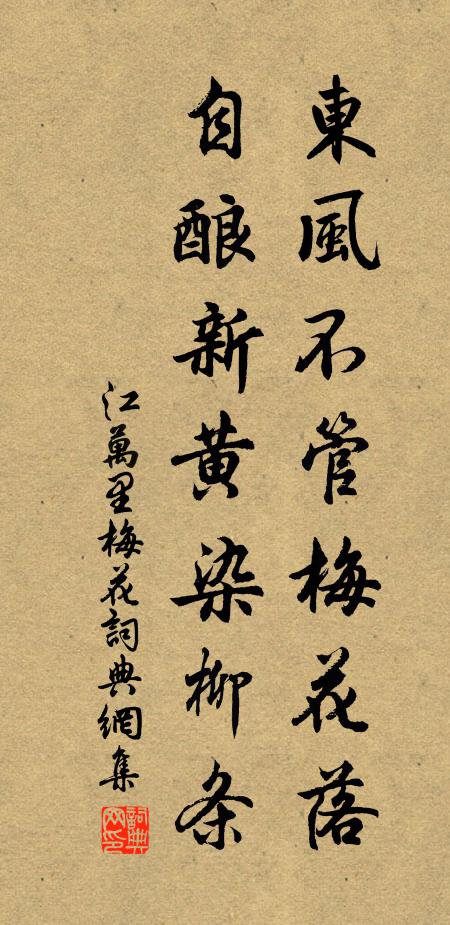 東風不管梅花落
自酿新黄染柳条
江萬里梅花詞典網集
詞典網印